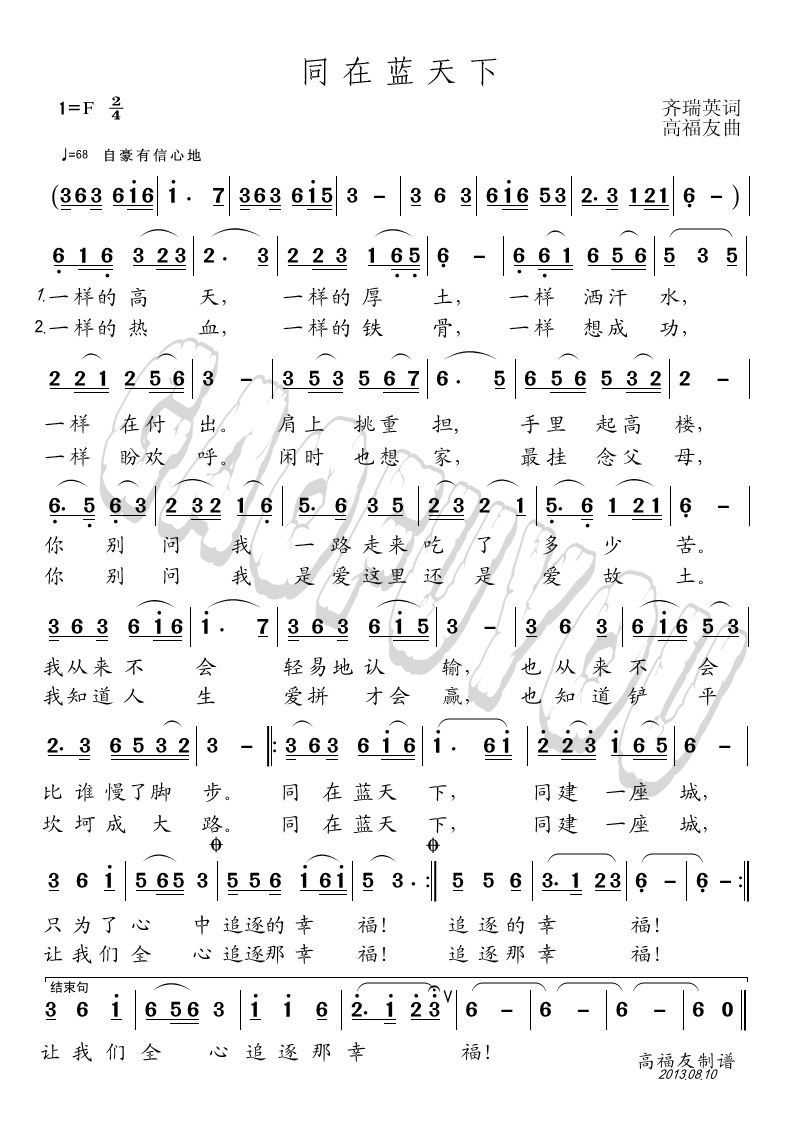 同在蓝天下
1=F 2/4
齐瑞英词
高福友曲
♩=68 自豪有信心地
(363 616 | 1. 7 | 363 615 | 3 - | 3 6 3 | 616 53 | 2. 3 121 | 6 - )|
6 1 6 3 2 3 | 2. 3 | 2 2 3 1 6 5 | 6 - | 6 6 1 6 5 6 | 5 3 5 |
1.一样的高 天, 一样的厚 土, 一样 洒汗 水,
2.一样的热 血, 一样的铁 骨, 一样 想成 功,
2 2 1 2 5 6 | 3 - | 3 5 3 5 6 7 | 6. 5 | 6 5 6 5 3 2 | 2 - |
一样 在付 出。 肩上 挑重 担, 手里 起高 楼,
一样 盼欢 呼。 闲时 也想 家, 最挂 念父 母,
6. 5 6 3 | 2 3 2 1 6 | 5. 6 3 5 | 2 3 2 1 | 5. 6 1 2 1 | 6 - |
你 别 问 我 一路走来吃 了 多 少 苦。
你 别 问 我 是爱这里还 是 爱 故 土。
3 6 3 6 1 6 | 1. 7 | 3 6 3 6 1 5 | 3 - | 3 6 3 | 6 1 6 5 3 |
我从来不 会 轻易地认 输, 也从来不 会
我知道人 生 爱拼 才会 赢, 也知道铲 平
2. 3 6 5 3 2 | 3 - ‖: 3 6 3 6 1 6 | 1. 6 1 | 2 2 3 1 6 5 | 6 - |
比谁慢了脚 步。 同 在蓝天 下, 同建 一座 城,
坎坷成大 路。 同 在蓝天 下, 同建 一座 城,
3 6 1 | 5 6 5 3 | 5 5 6 1 6 1 | 5 3. :‖ 5 5 6 | 3. 1 2 3 | 6 - | 6 - :‖
只为了心 中追逐的幸 福! 追逐的幸 福!
让我们全 心追逐那幸 福! 追逐那幸 福!
结束句
3 6 1 | 6 5 6 3 | 1 1 6 | 2. 1 2 3 ∨ | 6 - | 6 - | 6 - | 6 0 ‖
让我们全 心追逐那幸 福!
高福友制谱
2013.08.10
GAOFUYOU